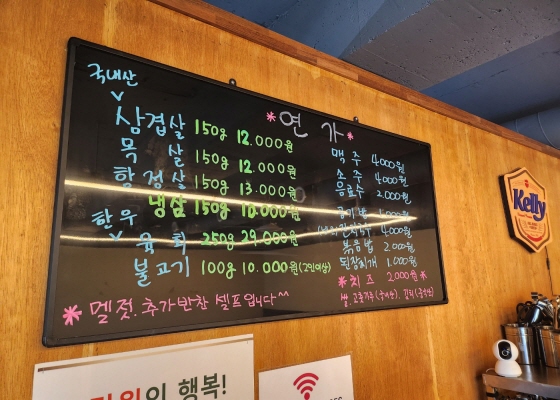 *연 가*
국내산
삼겹살 150g 12.000원
목 살 150g 12.000원
항정살 150g 13.000원
냉삼 150g 10.000원
한우
육 회 250g 29.000원
불고기 100g 10.000원(2인이상)
*멜젓.추가반찬 셀프입니다^^
맥 주 4000원
소 주 4000원
음료수 2.000원
공기밥 1.000원
4000원
볶음밥 2.000원
된장찌개 1.000원
*치 즈 2.000원*
쌀.고춧가루(국내산).김치(중국산)
Kelly
의 행복!